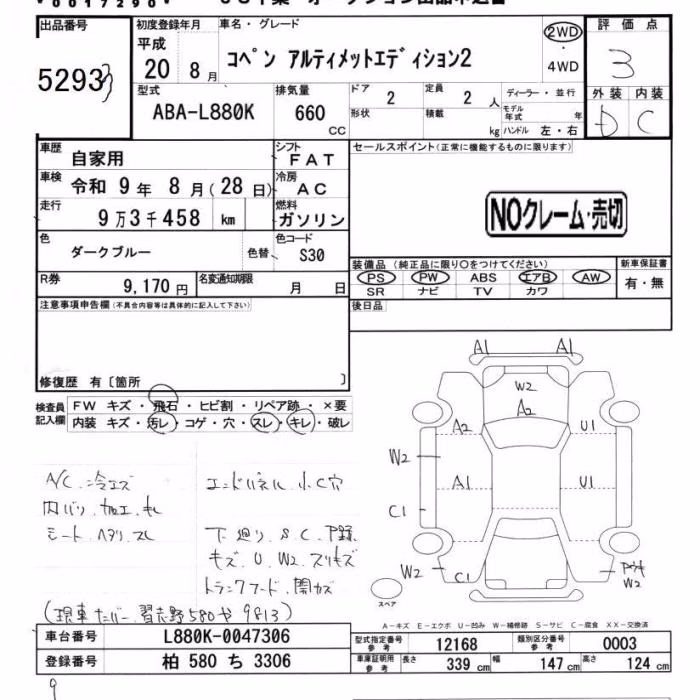 出品番号
初度登録年月 車名・グレード
評価点
5293
平成
20 8月
コペン アルティメットエディション2
2WD
・
4WD
3
型式
ABA-L880K
排気量
660
CC
ドア
2
定員
2 人
形状 積載 kg
ディーラー・並行
モデル年式 年
ハンドル 左・右
外装 内装
D C
車歴
自家用
シフト
FAT
セールスポイント(正常に機能するものに限ります)
車検
令和 9年 8月(28日)
冷房
AC
走行
9万3千458 km
燃料
ガソリン
NOクレーム・売切
色
ダークブルー
色替
色コード
S30
装備品(純正品に限り○をつけてください)
新車保証書
PS PW ABS エアB AW
有・無
SR ナビ TV カワ
R券
9,170円
名変通知期限
月 日
後日品
注意事項申告欄(不具合内容等は具体的に記入して下さい)
修復歴 有〔箇所 〕
検査員
記入欄
FW キズ・飛石・ヒビ割・リペア跡・×要
内装 キズ・汚レ・コゲ・穴・スレ・キレ・破レ
A1 A1
W2
A2
A2 U1
W2
A1 U1
C1
W2 C1
W2
スペア
A/C.冷エズ
エンドパネル.小C穴
内バリ.加工.キレ
シート.ヘタリ.スレ
下廻り.S.C.
キズ.U.W2.スリキズ
トランクフード.開カズ
(現車ナンバー.習志野580や9813)
A-キズ E-エクボ U-凹み W-補修跡 S-サビ C-腐食 XX-交換済
車台番号
L880K-0047306
型式指定番号
参考
12168
類別区分番号
参考
0003
登録番号
柏 580 ち 3306
車庫証明用
参考
長さ 339 cm 幅 147 cm 高さ 124 cm
9